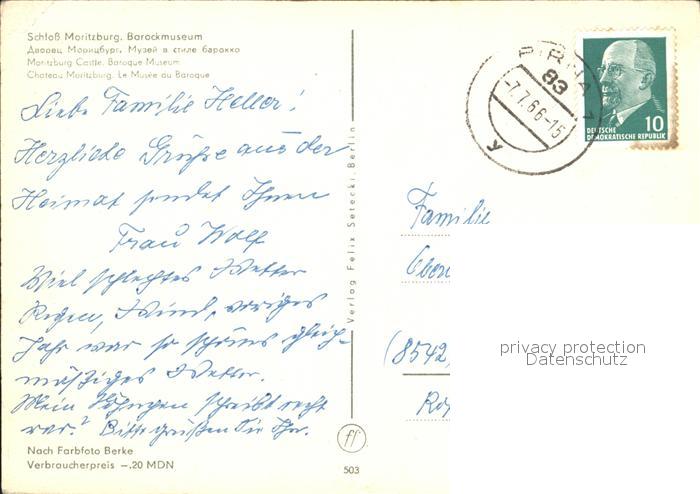 Schloß Moritzburg. Barockmuseum
Дворец Морицбург. Музей в стиле барокко
Moritzburg Castle. Baroque Museum
Chateau Moritzburg. Le Musée au Baroque
Liebe Familie Heller!
Herzliche Grüße aus der
Heimat sendet Ihnen
Frau Wolf
Viel schlechtes Wetter
Regen, Wind, voriges
Jahr war so schönes gleich-
mäßiges Wetter.
Mein schreibt recht
Bitte grüßen Sie Ihr.
Nach Farbfoto Berke
Verbraucherpreis –.20 MDN
Verlag Felix Setecki, Berlin
ff
503
PIRNA 1
83
-7.7.66-15
y
10
DEUTSCHE
DEMOKRATISCHE REPUBLIK
Familie
(8542)
privacy protection
Datenschutz